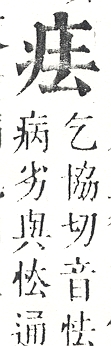 乞協切音怯
病劣與通